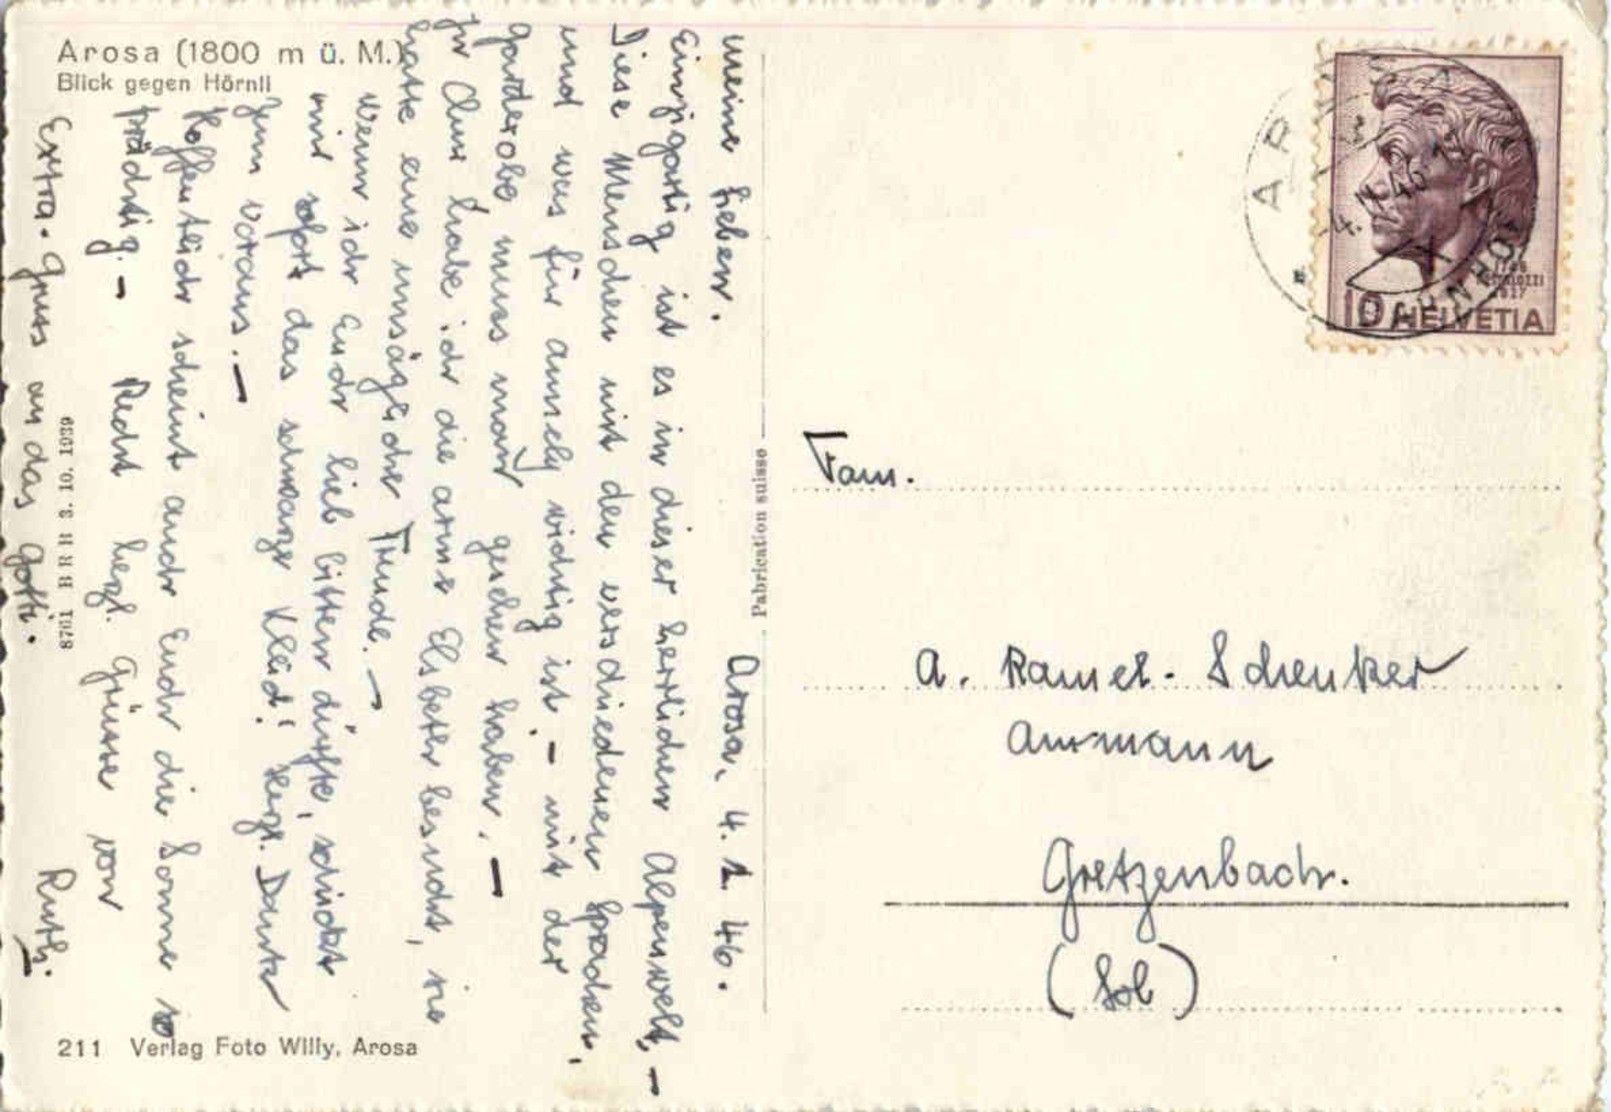 Arosa (1800 m ü. M.)
Blick gegen Hörnli
Meine Lieben.
Arosa, 4. 1. 46.
Einzigartig ist es in dieser herrlichen Alpenwelt, –
Diese Menschen mit den verschiedenen Sprachen,
und was für ammely wichtig ist. – mit der
Garderobe muss man gesehen haben. –
In Chur habe ich die arme Elsbeter besucht, sie
hatte eine unsägliche Freude. –
Wenn ich Euch lieb bitten dürfte, schickt
mir sofort das schwarze Kleid! Herzl. Dank
zum voraus. –
Hoffentlich scheint auch Euch die Sonne so
prächtig. – Recht herzl. Grüsse von
Ruth.
Extra-Gruss an das Gotti.
8761 BRB 3. 10. 1939
211 Verlag Foto Willy, Arosa
Fabrication suisse
4. 1. 46
1746
PESTALOZZI
1827
10 HELVETIA
Fam.
A. Ramel-Schenker
Ammann
Gretzenbach.
(Sol)